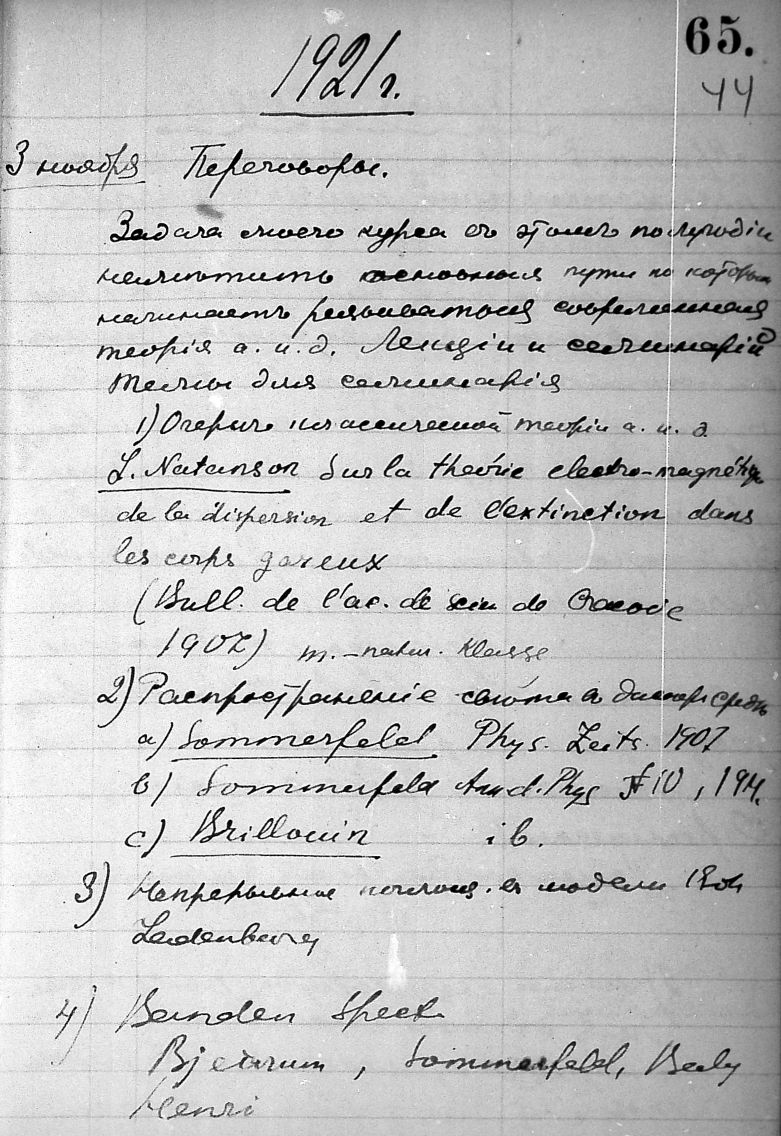 65.
44
1921 г.
3 ноября Переговоры.
Задача моего курса въ этомъ полугодіи
намѣтить основныя пути по которым
начинаетъ развиваться современная
теорія а. и. д. Лекціи и семинарій
Темы для семинарія
1) Очеркъ классической теоріи а. и. д
L. Natanson Sur la théorie electro-magnétique
de la dispersion et de l'extinction dans
les corps gazeux
(Bull. de l'ac. de scien de Cracovie
1907) m.-natur. Klasse
2) Распространеніе свѣта в дисперс средѣ
a) Sommerfeld Phys. Zeits. 1907
b) Sommerfeld Ann d. Phys № 10, 1914.
c) Brillouin ib.
3) Непрерывное поглощ. в модели
Ladenburg
4) Banden Spectr
Bjerrum, Sommerfeld,
Henri